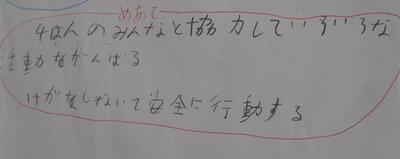 めあて
4はんのみんなと協力していろいろな
活動をがんばる
けがをしないで安全に行動する